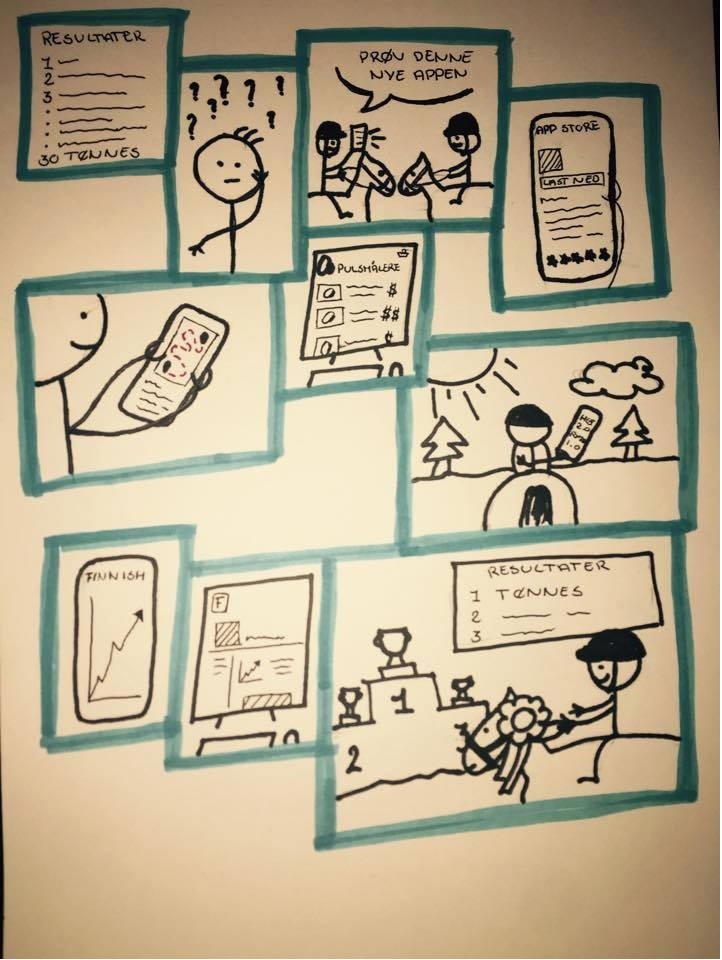 RESULTATER
1
2
3
30 TØNNES
? ? ? ? ? ?
PRØV DENNE
NYE APPEN
APP STORE
LAST NED
PULSMÅLERE
$
$$
¢
2.0
1.0
FINNISH
F
RESULTATER
1 TØNNES
2
3
1
2
3